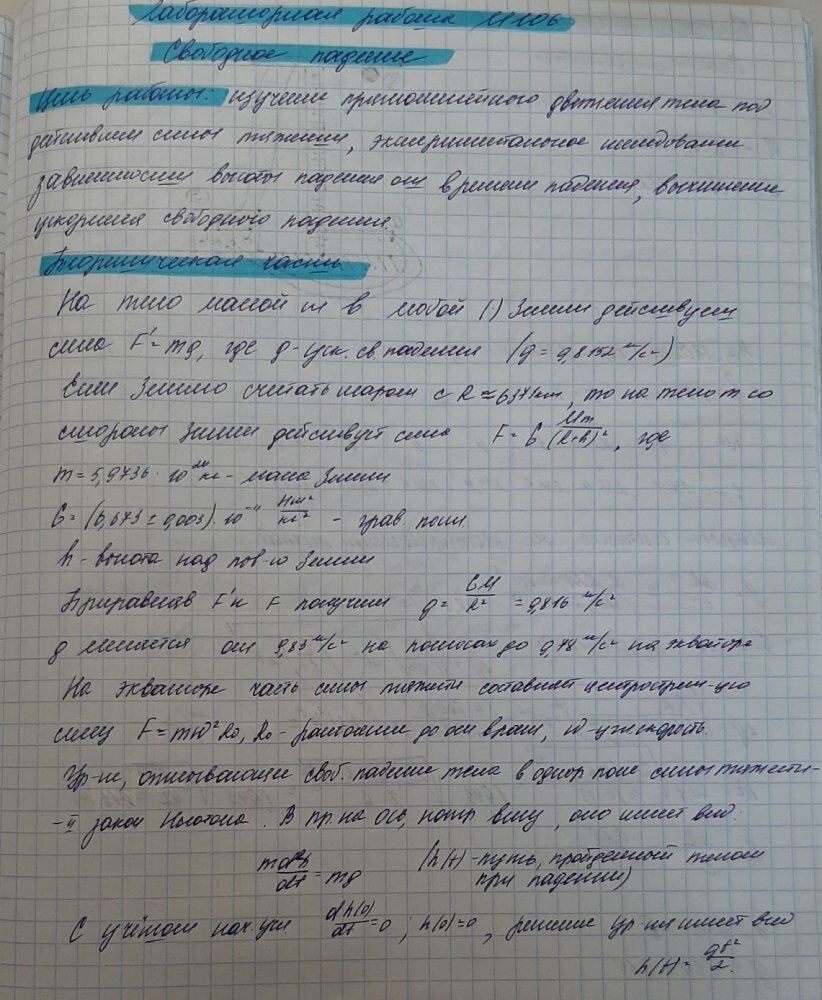 Лабораторная работа М106
Свободное падение
Цель работы: изучение прямолинейного движения тела под
действием силы тяжения, экспериментальное исследование
зависимости высоты падения от времени падения, вычисление
ускорения свободного падения.
Теоретическая часть.
На тело массой m в любой () Земли действует
сила F' = mg, где g-уск. св. падения (g = 9,8152 м/с²)
Если Землю считать шаром с R ≈ 6371км, то на тело m со
стороны Земли действует сила F = G Mm/(R+h)², где
m = 5,9736 · 10²⁴ кг - масса Земли
G = (6,673 ± 0,003) · 10⁻¹¹ Нм²/кг² - грав. пост.
h - высота над пов-ю Земли
Приравняв F' и F получим g = GM/R² = 9,816 м/с²
g меняется от 9,83 м/с² на полюсах до 9,78 м/с² на экваторе
На экваторе часть силы тяжести составляет центрострем-ую
силу F = mω²R₀, R₀ - расстояние до оси вращ, ω - угл. скорость.
Ур-ие, описывающее своб. падение тела в однор поле силы тяжести-
- II закон Ньютона. В пр. на ось, напр вниз, оно имеет вид:
md²h/dt = mg (h(t) - путь, пройденный телом
при падении)
С учётом нач. усл dh(0)/dt = 0; h(0) = 0, решение ур-ия имеет вид
h(t) = gt²/2.